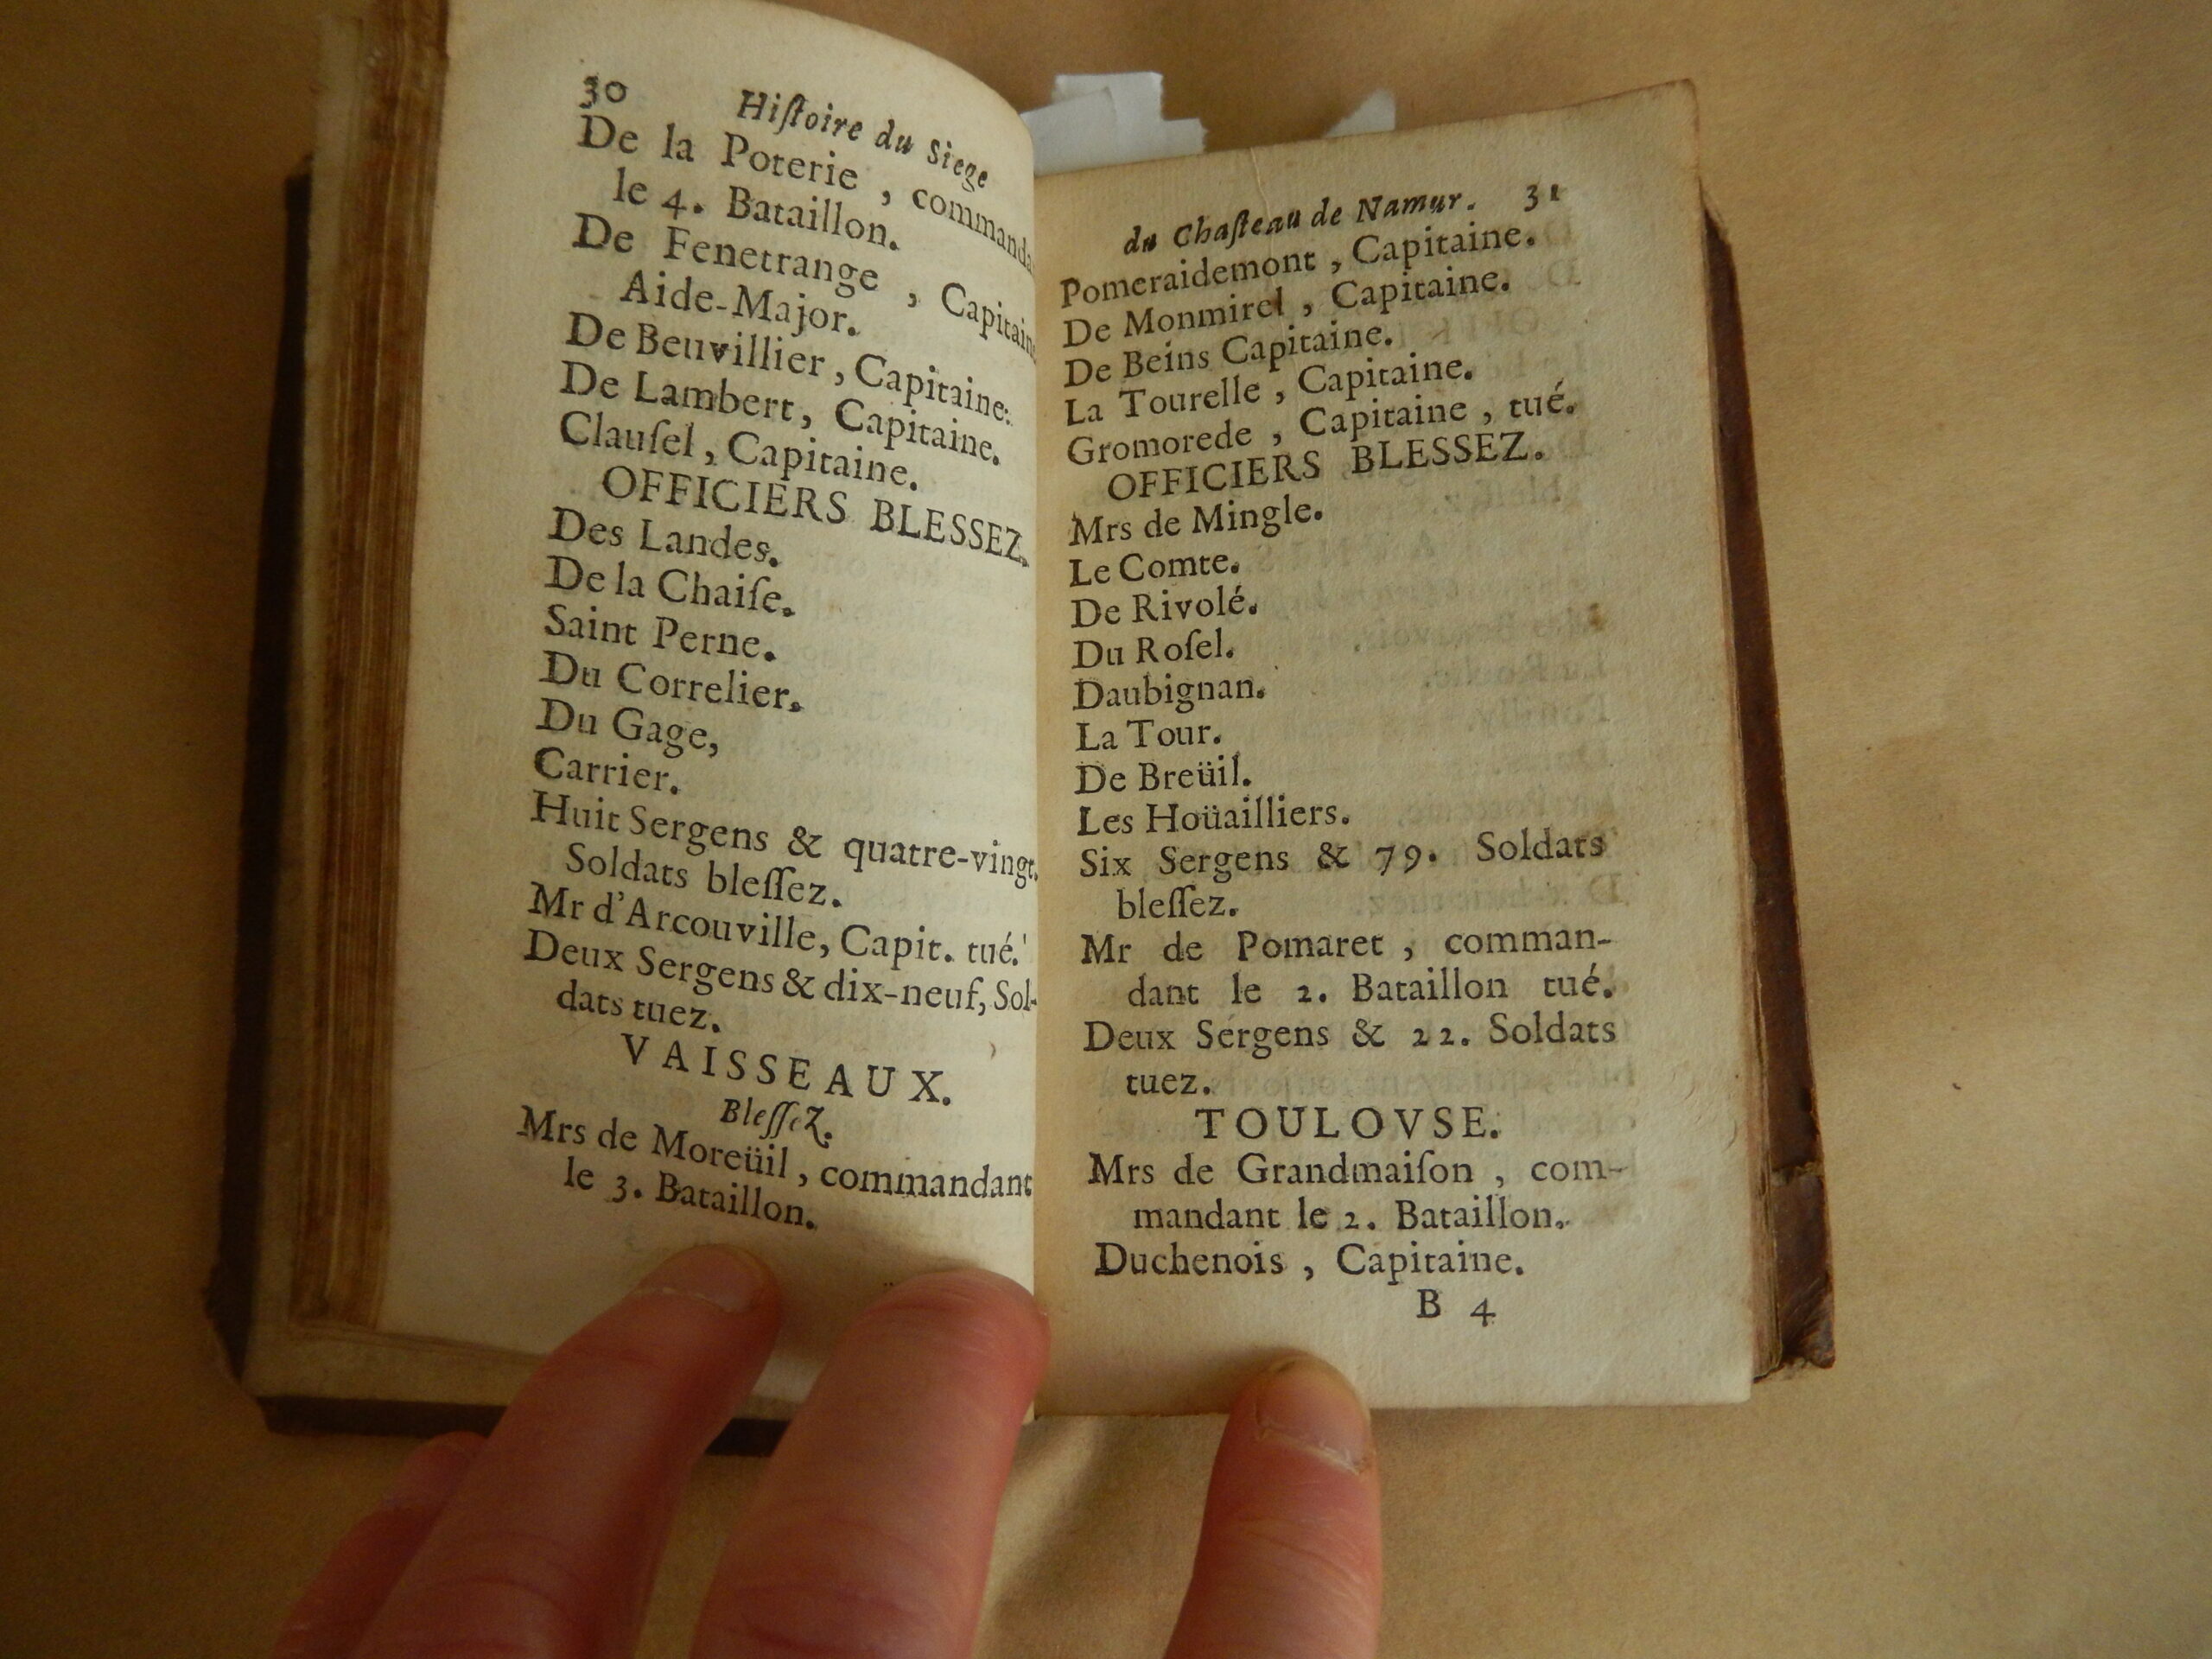 30 Hiſtoire du Siege
De la Poterie, commanda
le 4. Bataillon.
De Fenetrange, Capitaine
Aide-Major.
De Beuvillier, Capitaine.
De Lambert, Capitaine.
Clauſel, Capitaine.
OFFICIERS BLESSEZ.
Des Landes.
De la Chaiſe.
Saint Perne.
Du Correlier.
Du Gage,
Carrier.
Huit Sergens & quatre-vingt
Soldats bleſſez.
Mr d'Arcouville, Capit. tué.
Deux Sergens & dix-neuf, Sol-
dats tuez.
VAISSEAUX.
Bleſſez.
Mrs de Moreüil, commandant
le 3. Bataillon.
du Chaſteau de Namur. 31
Pomeraidemont, Capitaine.
De Monmirel, Capitaine.
De Beins Capitaine.
La Tourelle, Capitaine.
Gromorede, Capitaine, tué.
OFFICIERS BLESSEZ.
Mrs de Mingle.
Le Comte.
De Rivolé.
Du Roſel.
Daubignan.
La Tour.
De Breüil.
Les Hoüailliers.
Six Sergens & 79. Soldats
bleſſez.
Mr de Pomaret, comman-
dant le 2. Bataillon tué.
Deux Sergens & 22. Soldats
tuez.
TOULOVSE.
Mrs de Grandmaiſon, com-
mandant le 2. Bataillon.
Duchenois, Capitaine.
B 4